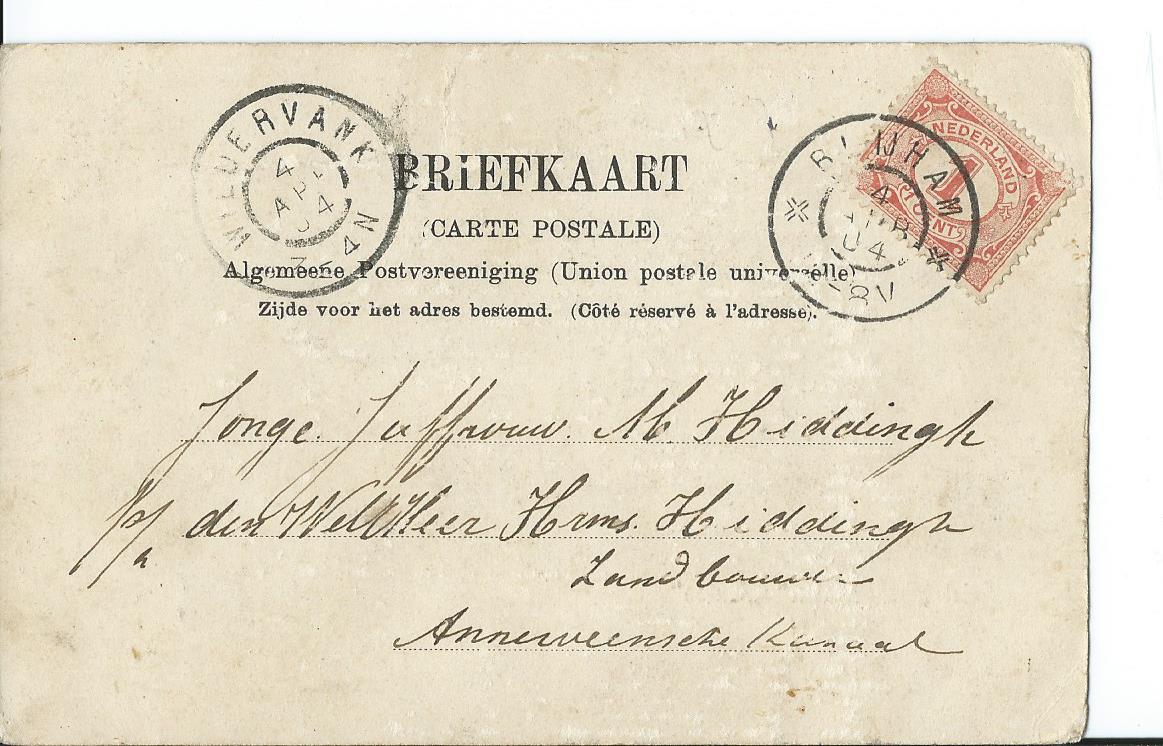 WILDERVANK
4
APR
04
3-4N
BRIEFKAART
(CARTE POSTALE)
Algemeene Postvereeniging (Union postale universelle)
Zijde voor het adres bestemd. (Côté réservé à l'adresse).
NEDERLAND
1
CENT
BLIJHAM
4
APR
04
7-8V
Jonge Juffrouw. M Hiddingh
p/a den WelHeer Hrms. Hiddingh
Landbouwer
Annerveensche Kanaal